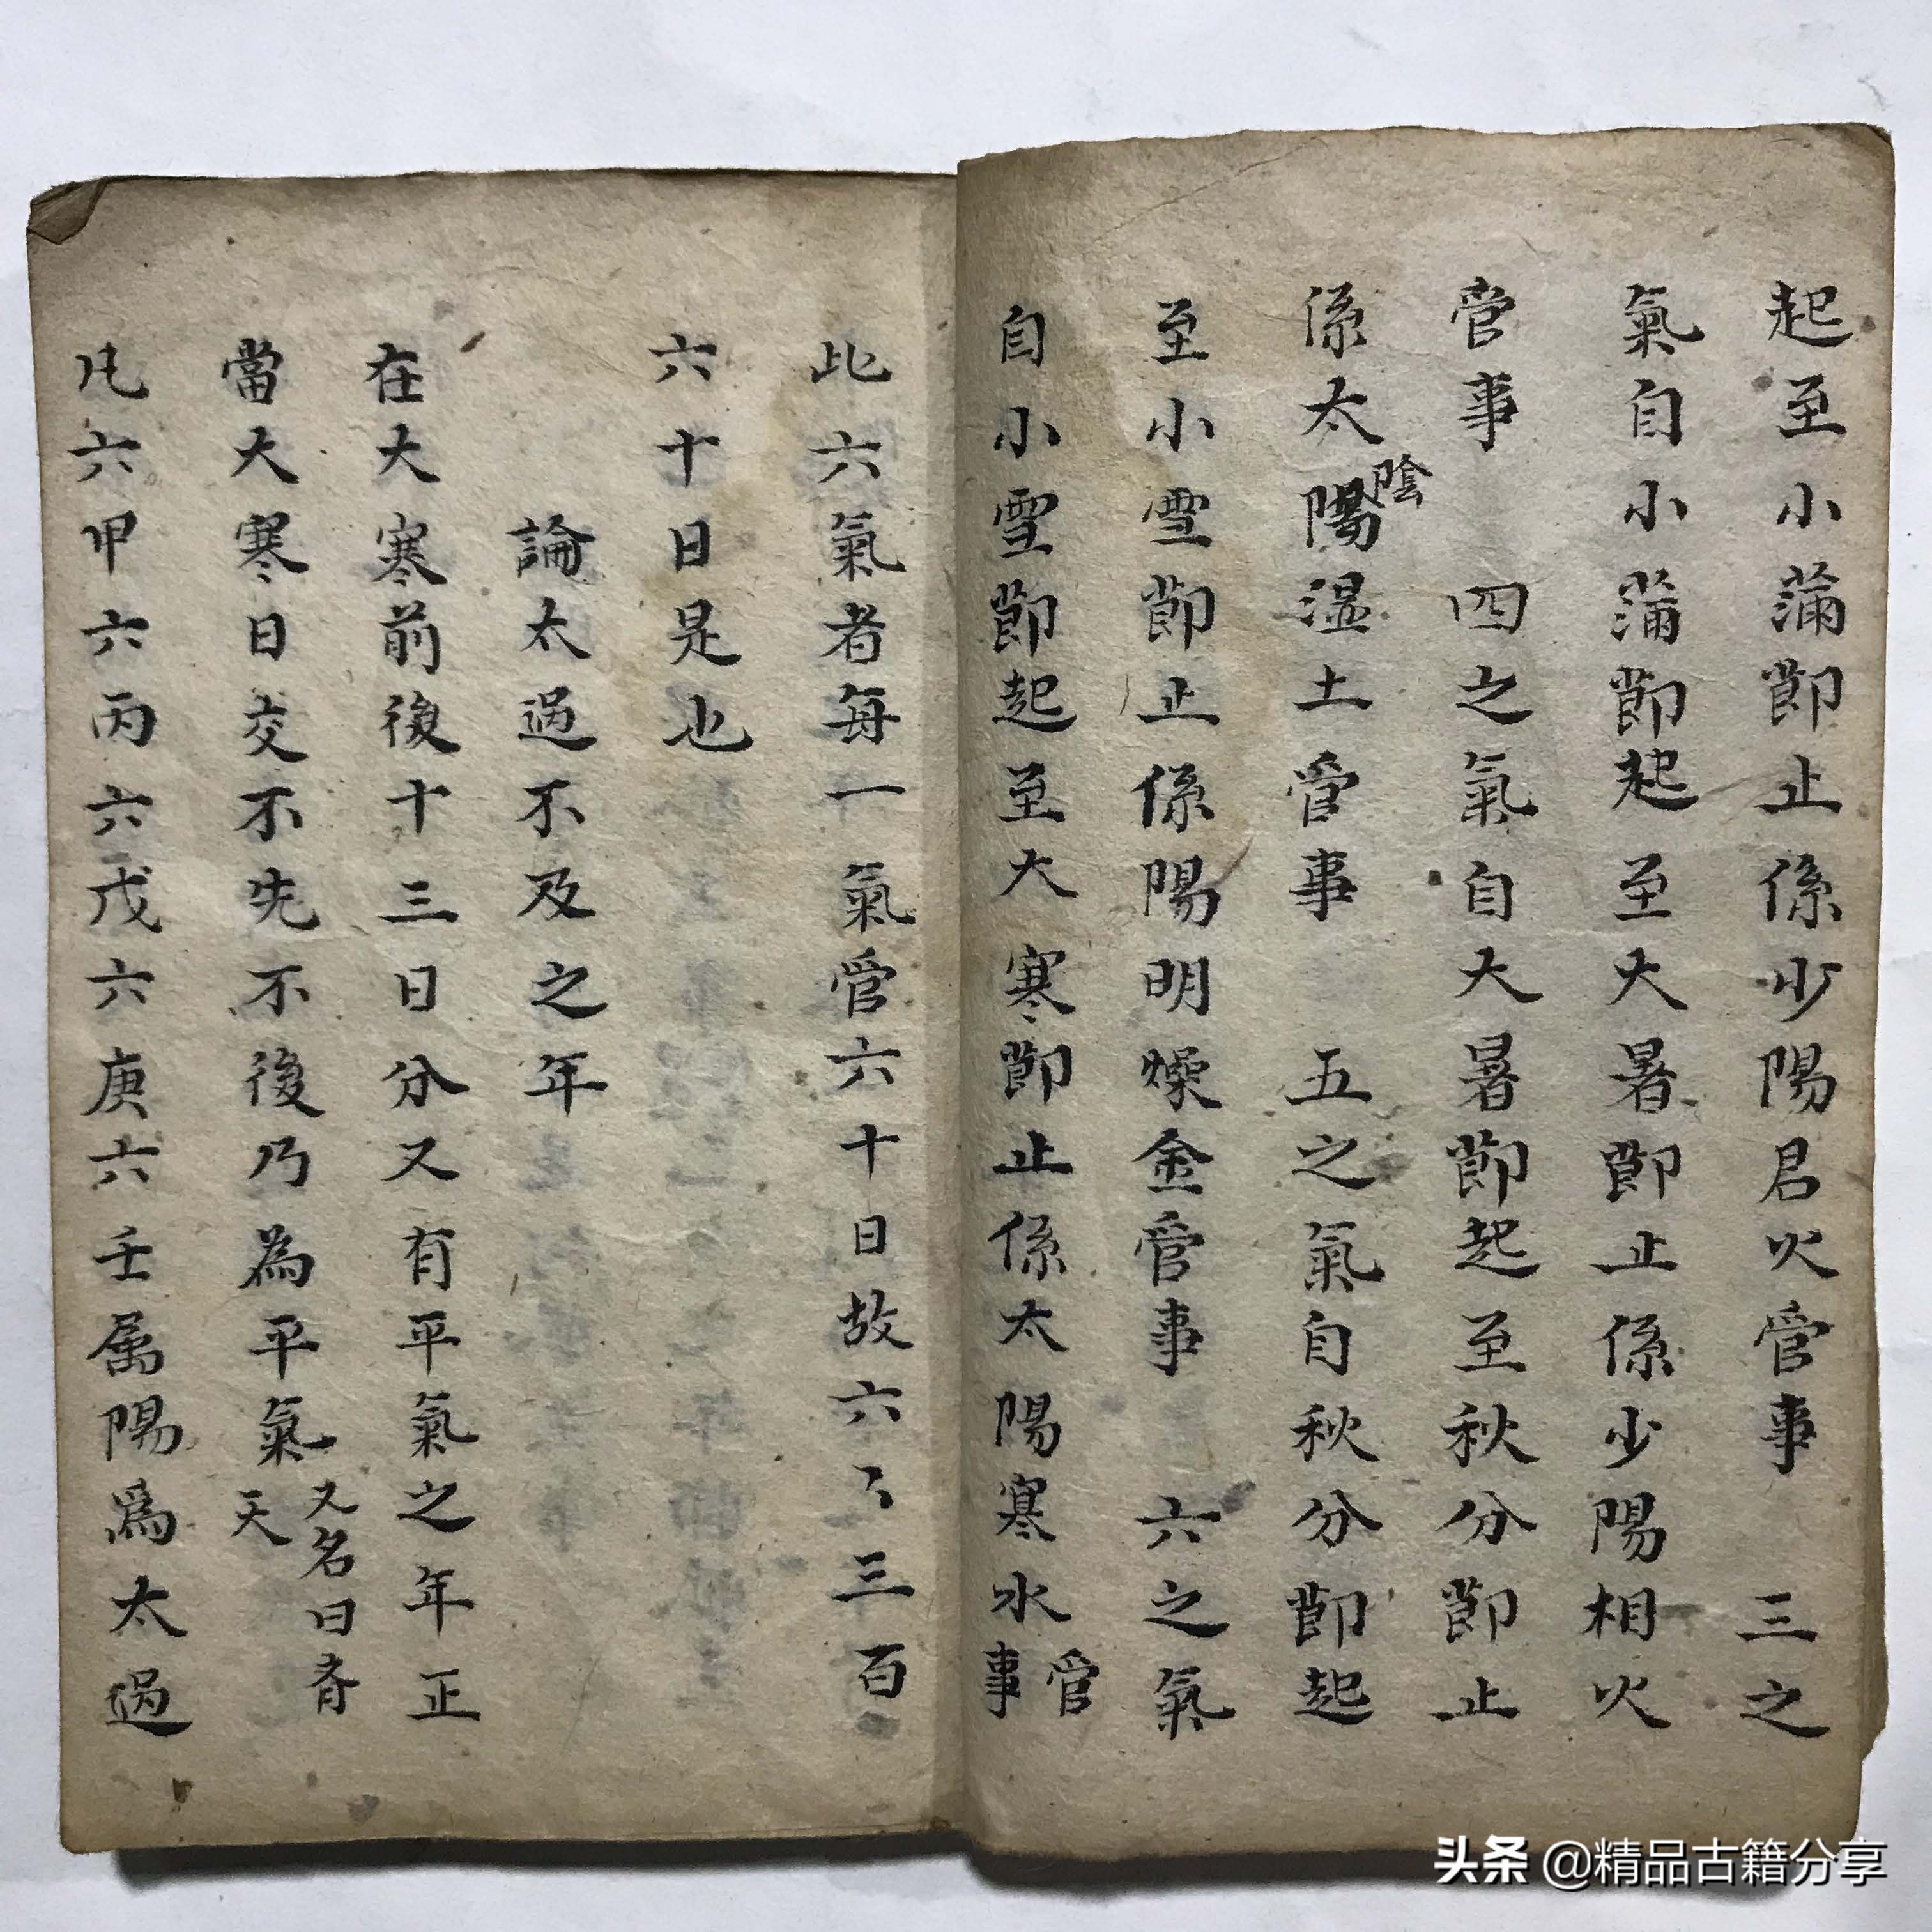 起至小蒲節止係少陽君火管事　三之
氣自小蒲節起至大暑節止係少陽相火
管事　四之氣自大暑節起至秋分節止
係太陽陰湿土管事　五之氣自秋分節起
至小雪節止係陽明燥金管事　六之氣
自小雪節起至大寒節止係太陽寒水管事
此六氣者每一氣管六十日故六〻三百
六十日是也
論太過不及之年
在大寒前後十三日分又有平氣之年正
當大寒日交不先不後乃為平氣又名曰斉天
凡六甲六丙六戊六庚六壬属陽爲太過
头条 @精品古籍分享